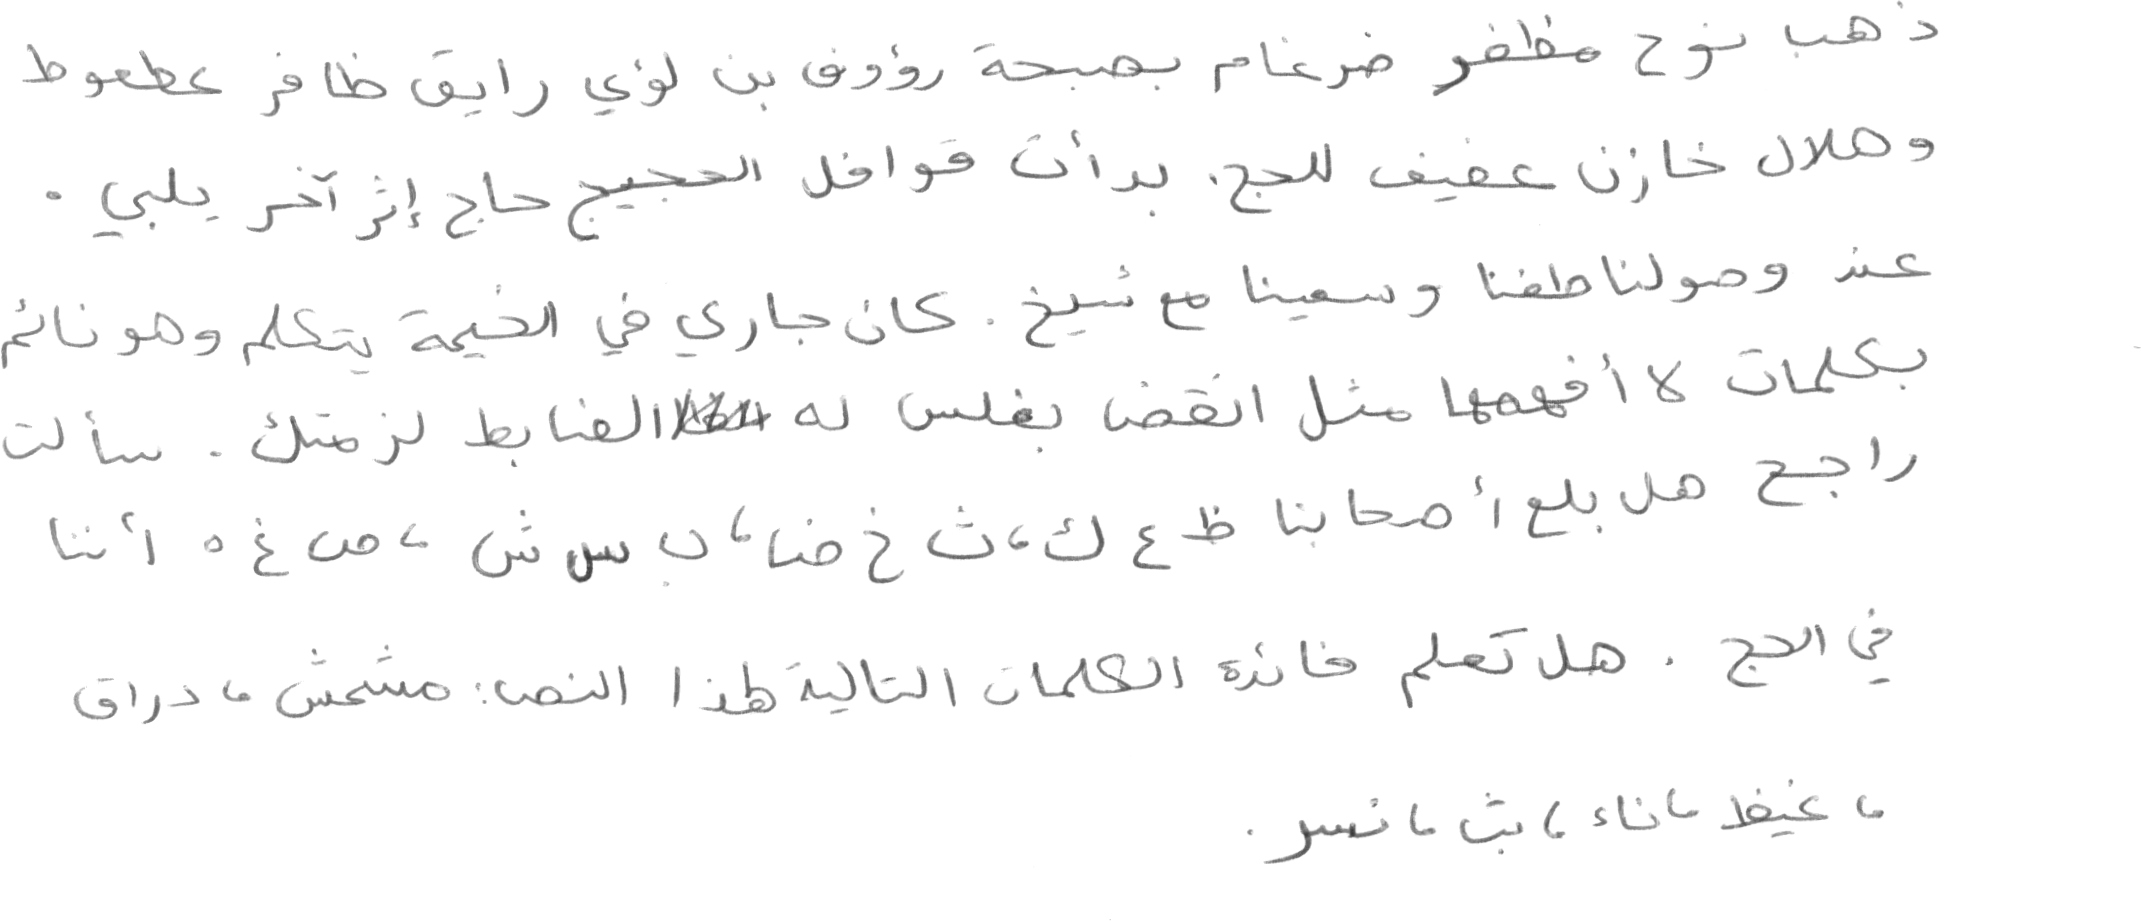 ذهب نوح مظفر ضرغام بصبحة رؤوف بن لؤي رايق ظافر عطعوط
وهلال خازن عفيف للحج. بدأت قوافل الحجيج حاج إثر آخر يلبي .
عند وصولنا طفنا وسعينا مع شيخ . كان جاري في الخيمة يتكلم وهو نائم
بكلمات لا أفهمها مثل انقض بغلس له الضابط لزمتك . سألت
راجح هل بلع أصحابنا ظ ع ك، ث خ ض، ب س ش ، ص غ ه أننا
في الحج . هل تعلم فائدة الكلمات التالية لهذا النص: مشمش ، دراق
، غيظ ، ناء ، بث ، نسر .